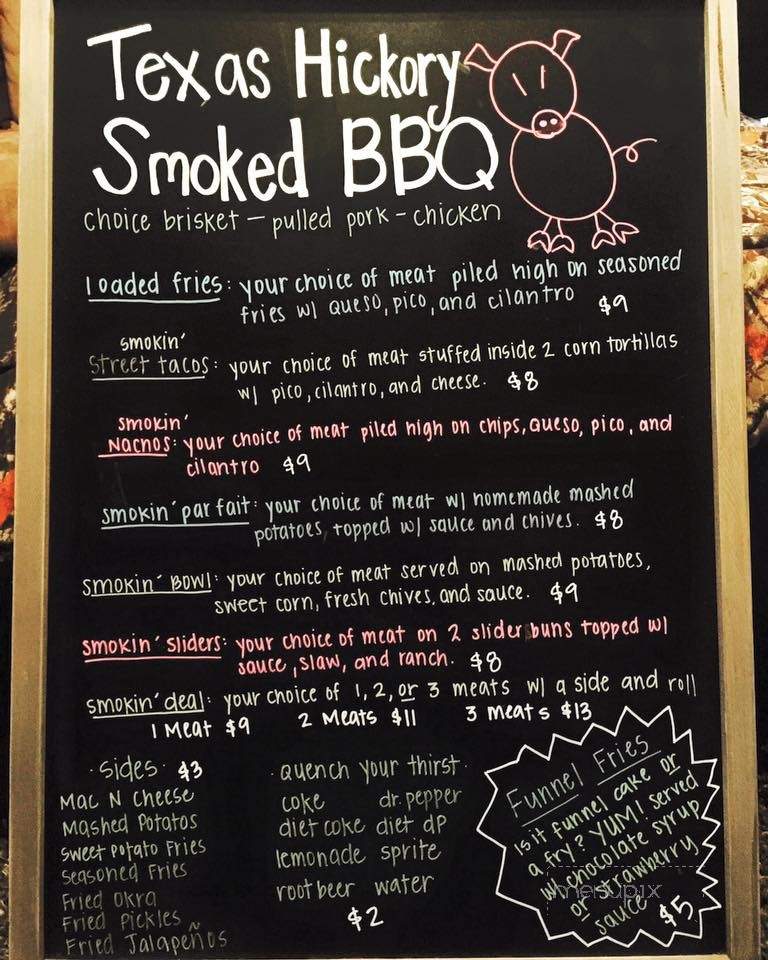 Texas Hickory
Smoked BBQ
choice brisket - pulled pork - chicken
loaded fries: your choice of meat piled high on seasoned
fries w/ queso, pico, and cilantro $9
smokin'
street tacos: your choice of meat stuffed inside 2 corn tortillas
w/ pico, cilantro, and cheese. $8
smokin'
nachos: your choice of meat piled high on chips, queso, pico, and
cilantro $9
smokin' parfait: your choice of meat w/ homemade mashed
potatoes, topped w/ sauce and chives. $8
smokin' bowl: your choice of meat served on mashed potatoes,
sweet corn, fresh chives, and sauce. $9
smokin' sliders: your choice of meat on 2 slider buns topped w/
sauce, slaw, and ranch. $8
smokin' deal: your choice of 1, 2, or 3 meats w/ a side and roll
1 Meat $9 2 Meats $11 3 meats $13
· sides · $3
Mac N Cheese
Mashed Potatos
Sweet Potato Fries
Seasoned Fries
Fried Okra
Fried Pickles
Fried Jalapeños
· quench your thirst ·
coke dr. pepper
diet coke diet dp
lemonade sprite
root beer water
$2
Funnel Fries
Is it funnel cake or
a fry? YUM! served
w/ chocolate syrup
or strawberry
sauce $5
menupix